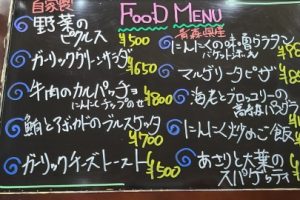 自家製
野菜の
ピクルス
¥500
ガーリックグリーンサラダ
¥650
牛肉のカルパッチョ
にんにくチップのせ
¥800
鮪とアボカドのブルスケッタ
¥700
ガーリックチーズトースト
¥500
FOOD MENU
青森県産
にんにくの味噌グラタン
バゲット
マルゲリータピザ
¥8
海老とブロッコリーの
にんにく炒めご飯
あさりと大葉の
スパゲッティ